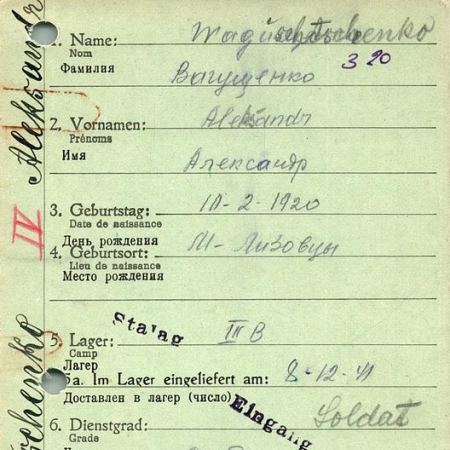 1. Name: Waguschtschenko
Nom
3 20
Фамилия Вагущенко
2. Vornamen: Aleksandr
Prénoms
Имя Александр
3. Geburtstag: -2-1920
Date de naissance
День рождения М-Лизовцы
4. Geburtsort:
Lieu de naissance
Место рождения
Stalag
5. Lager: III B
Camp
Лагерь
5a. Im Lager eingeliefert am: 8-12-41
Доставлен в лагерь (число)
Eingang
Soldat
6. Dienstgrad:
Grade
Aleksandr
IV